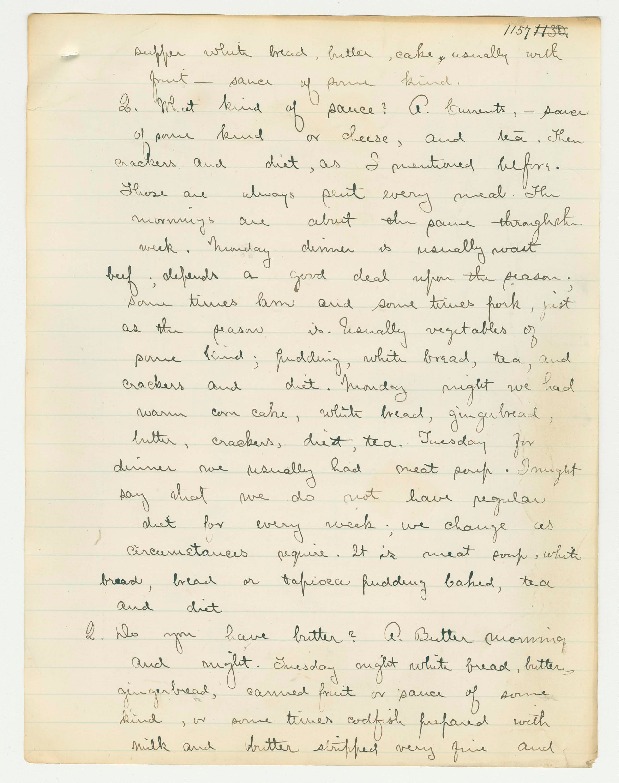 1157 1130
supper white bread, butter, cake, usually with
fruit — sauce of some kind.
Q. What kind of sauce? A. Currents, — sauce
of some kind or cheese, and tea. Then
crackers and diet, as I mentioned before.
Those are always sent every meal. The
mornings are about the same through the
week. Monday dinner is usually roast
beef; depends a good deal upon the season;
some times lam and some times pork, just
as the season is. Usually vegetables of
some kind; pudding, white bread, tea, and
crackers and diet. Monday night we had
warm corn cake, white bread, gingerbread,
butter, crackers, diet, tea. Tuesday for
dinner we usually had meat soup. I might
say that we do not have regular
diet for every week; we change as
circumstances require. It is meat soup, white
bread, bread or tapioca pudding baked, tea
and diet
Q. Do you have butter? A. Butter morning
and night. Tuesday night white bread, butter,
gingerbread, canned fruit or sauce of some
kind, or some times codfish prepared with
milk and butter stripped very fine and